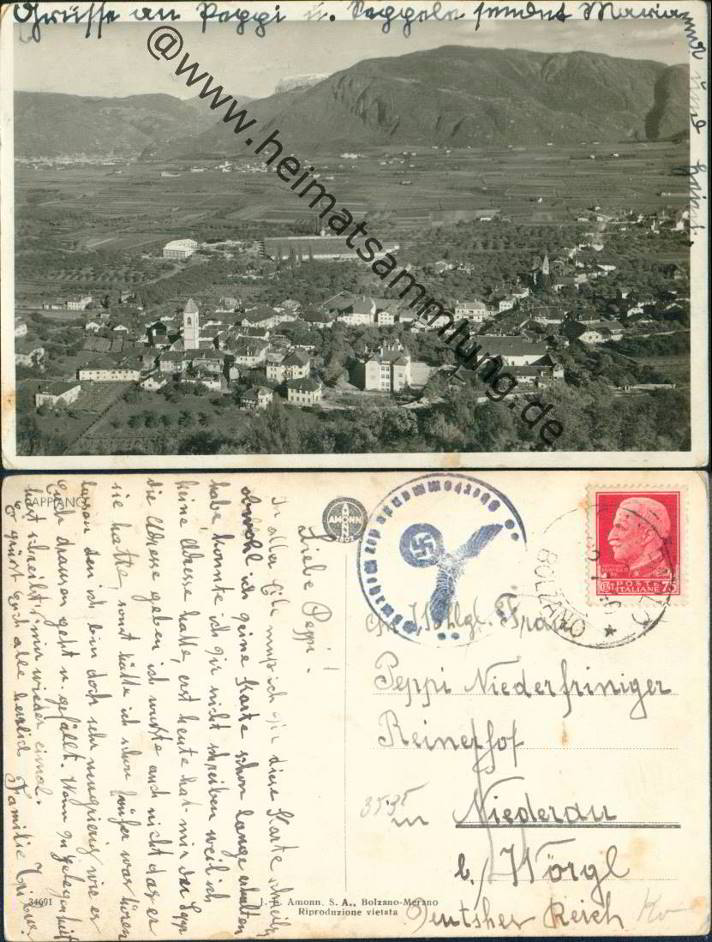 Grüsse an Peppi u. Seppele sendet Maria
und
@www.heimatsammlung.de
APPIANO
AMONN
Liebe Peppi!
In aller Eile muss ich dir diese Karte schreiben
obwohl ich deine Karte schon lange erhalten
habe, konnte ich dir nicht schreiben weil ich
keine Adresse hatte, erst heute hat mir der Sepp
die Adresse geben ich wusste auch nicht das er
sie hatte, sonst hätte ich schon früher was hören
lassen den ich bin doch sehr neugierig wie es
Euch draussen geht u. gefällt. Wenn du gelegenheit
hast schreibst mir wieder einmal.
Es grüsst Euch alle herzlich Familie
34691
J. F. Amonn. S. A., Bolzano-Merano
Riproduzione vietata
Oberkommando der Wehrmacht
BOLZANO
POSTE
ITALIANE
75
Frau
Peppi Niederfriniger
Reinerhof
35-35
in Niederau
b/ Wörgl
Deutsches Reich